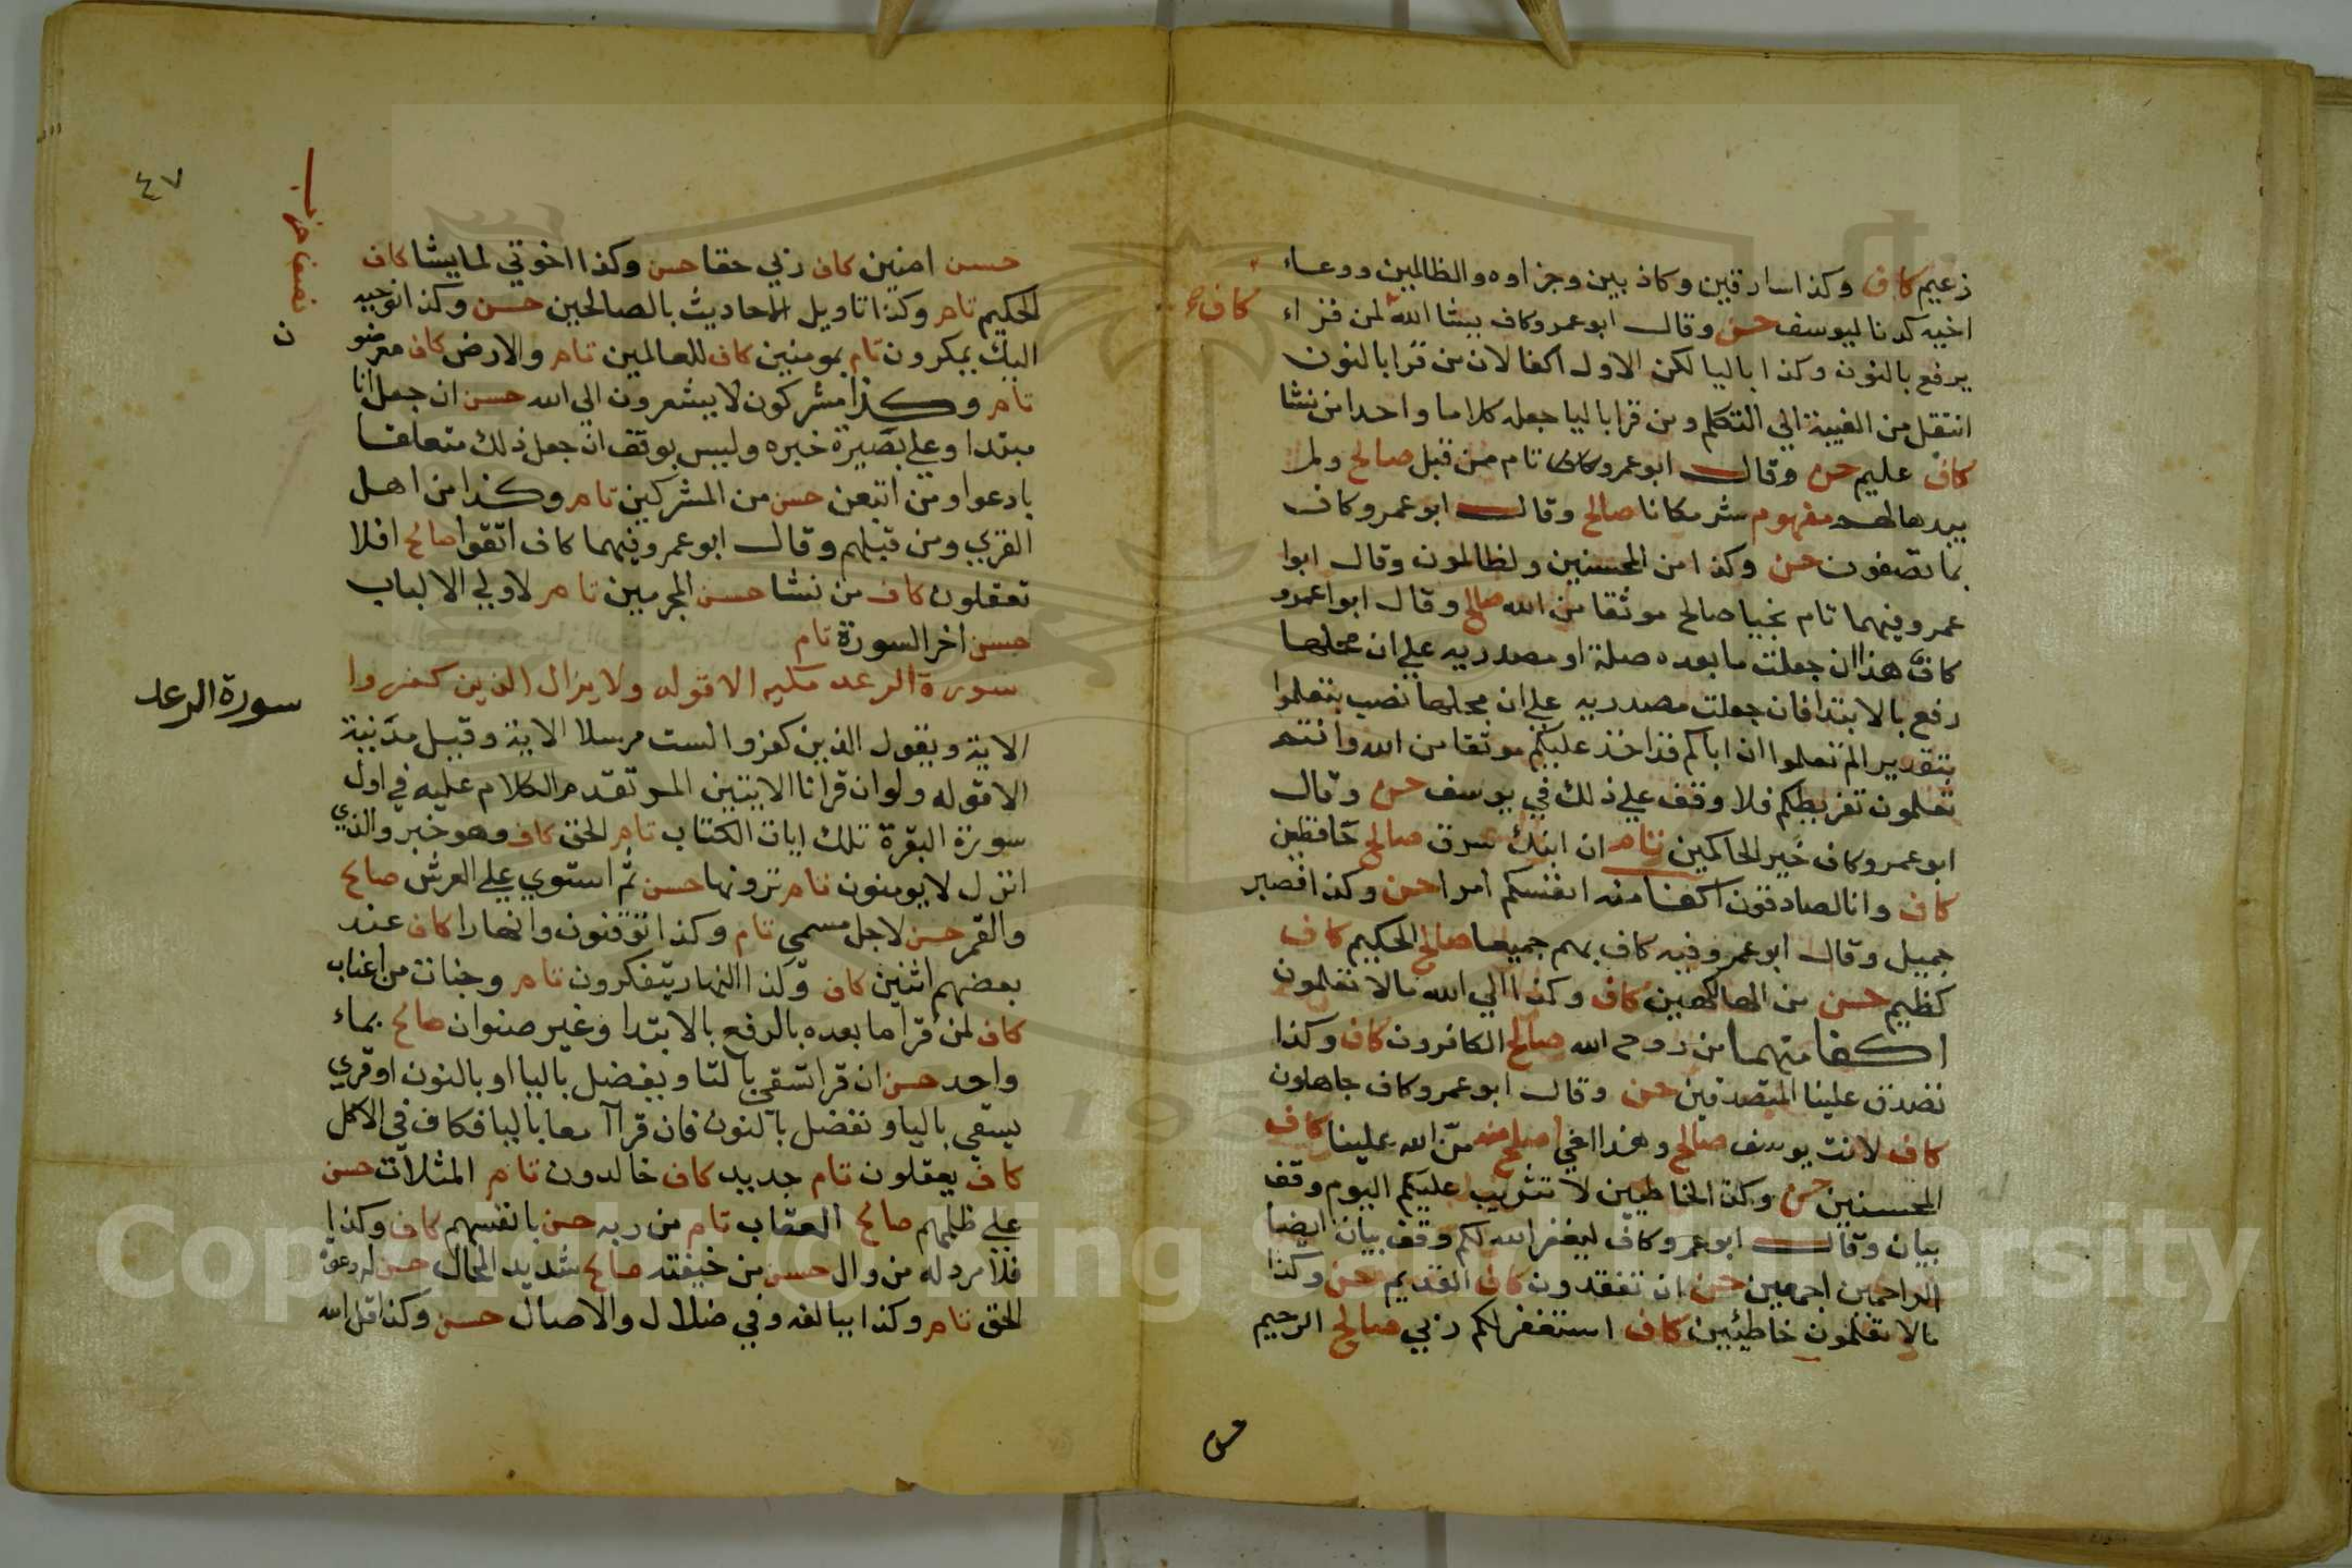 زعيم كاف وكذا سارقين وكاذبين وجزاوه والظالمين ووعاء
اخيه كدنا ليوسف حسن وقال ابو عمرو كاف يشا الله لمن قراء
كاف
يرفع بالنون وكذا باليا لكن الاول اكفا لان من قرا بالنون
انتقل من الغيبة الي التكلم ومن قرا باليا جعله كلاما واحدا من نشا
كاف عليم حسن وقال ابو عمرو كاف تام من قبل صالح ولم
يبدها لهم مفهوم شر مكانا صالح وقال ابو عمرو كاف
بما تصفون حسن وكذا من المحسنين ولظالمون وقال ابوا
عمرو فيهما تام نجيا صالح موثقا من الله صالح وقال ابوا عمرو
كاف هذا ان جعلت ما بعده صلة او مصدريه علي ان محلها
رفع بالابتدا فان جعلت مصدريه علي ان محلها نصب بتعلموا
بتقدير الم تعلموا ان اباكم قد اخذ عليكم موثقا من الله وانتم
تعلمون تفريطكم فلا وقف علي ذلك في يوسف حسن وقال
ابو عمرو كاف خير الحاكمين تام ان ابنك سرق صالح حافظين
كاف وانا لصادقون اكفا منه انفسكم امرا حسن وكذا فصبر
جميل وقال ابو عمرو فيه كاف بهم جميعا صالح الحكيم كاف
كظيم حسن من الهالكين كاف وكذا الي الله ما لا تعلمون
اكفا منهما من روح الله صالح الكافرون كاف وكذا
تصدق علينا المتصدقين حسن وقال ابو عمرو كاف جاهلون
كاف لانت يوسف صالح وهذا اخي اصلح منه من الله علينا كاف
المحسنين حسن وكذا لخاطيين لا تثريب عليكم اليوم وقف
بيان وقال ابو عمرو كاف ليغفر الله لكم وقف بيان ايضا
الراحمين اجمعين حسن ان تفقدون كاف القديم حسن وكذا
ما لا تعلمون خاطئين كاف استغفر لكم ربي صالح الرحيم
حسن
٤٧
نصف حزب
حسن امنين كاف ربي حقا حسن وكذا اخوتي لما يشا كاف
الحكيم تام وكذا تاويل الاحاديث بالصالحين حسن وكذا نوحيه
اليك يمكرون تام بمومنين كاف للعالمين تام والارض كاف معرضو
ن
تام وكذا مشركون لا يشعرون الي الله حسن ان جعل انا
مبتدا وعلي بصيرة خبره وليس بوقف ان جعل ذلك متعلقا
بادعوا ومن اتبعن حسن من المشركين تام وكذا من اهل
القري ومن قبلهم وقال ابو عمرو فيهما كاف اتقوا صالح افلا
تعقلون كاف من نشا حسن المجرمين تام لاولي الالباب
حسن اخر السورة تام
سورة الرعد
سورة الرعد مكيه الا قوله ولا يزال الذين كفروا
الاية ويقول الذين كفروا لست مرسلا الاية وقيل مدنية
الا قوله ولو ان قرانا الايتين المر تقدم الكلام عليه في اول
سورة البقرة تلك ايات الكتاب تام الحق كاف وهو خبر والذي
انزل لا يومنون تام ترونها حسن ثم استوي علي العرش صالح
والقمر حسن لاجل مسمي تام وكذا توقنون وانهارا كاف عند
بعضهم اثنين كاف وكذا النهار يتفكرون تام وجنات من اعناب
كاف لمن قرا ما بعده بالرفع بالابتدا وغير صنوان صالح بماء
واحد حسن ان قرا تسقي بالتا ويفضل باليا او بالنون او قري
يسقي باليا ونفضل بالنون فان قرآ معا باليا فكاف في الاكل
كاف يعقلون تام جديد كاف خالدون تام المثلات حسن
علي ظلمهم صالح العقاب تام من ربه حسن بانفسهم كاف وكذا
فلا مرد له من وال حسن من خيفته صالح شديد المحال حسن له دعوة
الحق تام وكذا ببالغه وفي ضلال والاصال حسن وكذا قل الله
Copyright © King Saud University